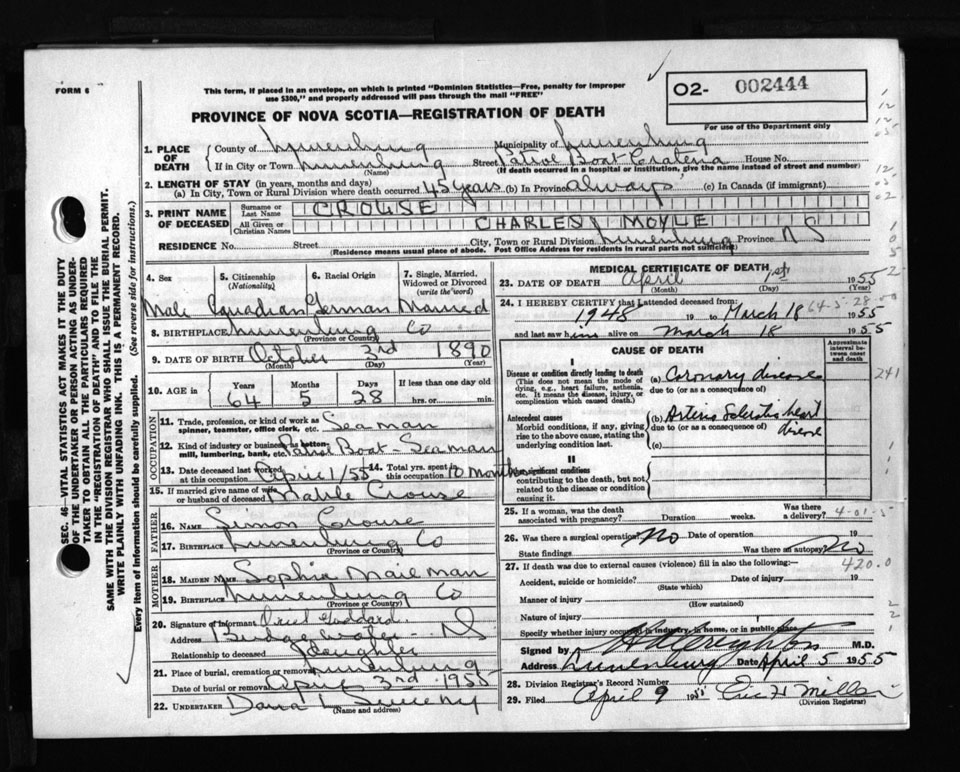 FORM 6
This form, if placed in an envelope, on which is printed "Dominion Statistics—Free, penalty for improper
use $300," and properly addressed will pass through the mail "FREE"
PROVINCE OF NOVA SCOTIA—REGISTRATION OF DEATH
O2- 002444
For use of the Department only
1. PLACE OF DEATH
County of Lunenburg Municipality of Lunenburg
If in City or Town Lunenburg Street Patrol Boat House No.
(Name) (If death occurred in a hospital or institution, give the name instead of street and number)
2. LENGTH OF STAY (in years, months and days)
(a) In City, Town or Rural Division where death occurred 45 years (b) In Province always (c) In Canada (if immigrant)
3. PRINT NAME OF DECEASED
Surname or Last Name CROUSE
All Given or Christian Names CHARLES MOYLE
RESIDENCE No. Street City, Town or Rural Division Lunenburg Province NS
(Residence means usual place of abode. Post Office Address for residents in rural parts not sufficient)
4. Sex 5. Citizenship (Nationality) 6. Racial Origin 7. Single, Married, Widowed or Divorced (write the word)
Male Canadian German Married
8. BIRTHPLACE Lunenburg Co
(Province or Country)
9. DATE OF BIRTH October 3rd 1890
(Month) (Day) (Year)
10. AGE in Years Months Days If less than one day old
64 5 28 hrs. or min.
OCCUPATION
11. Trade, profession, or kind of work as spinner, teamster, office clerk, etc. Seaman
12. Kind of industry or business, as cotton-mill, lumbering, bank, etc. Patrol Boat - Seaman
13. Date deceased last worked at this occupation April 1/55 14. Total yrs. spent in this occupation 10 months
15. If married give name of wife or husband of deceased Mable Crouse
FATHER
16. NAME Simon Crouse
17. BIRTHPLACE Lunenburg Co
(Province or Country)
MOTHER
18. MAIDEN NAME Sophia
19. BIRTHPLACE Lunenburg Co
(Province or Country)
20. Signature of informant Goddard
Address Bridgewater - NS
Relationship to deceased daughter
21. Place of burial, cremation or removal Lunenburg
Date of burial or removal April 3rd 1955
22. UNDERTAKER Dana L Sweeny
(Name and address)
MEDICAL CERTIFICATE OF DEATH
23. DATE OF DEATH April 1st 1955
(Month) (Day)
24. I HEREBY CERTIFY that I attended deceased from:
1948 19 to March 18 1955
and last saw him alive on March 18 1955
64-5-28
CAUSE OF DEATH
Approximate interval between onset and death
I
Disease or condition directly leading to death (a) Coronary disease
(This does not mean the mode of dying, e.g., heart failure, asthenia, etc. It means the disease, injury, or complication which caused death.)
due to (or as a consequence of)
241
Antecedent causes (b) Arterio Sclerotic heart disease
Morbid conditions, if any, giving rise to the above cause, stating the underlying condition last.
due to (or as a consequence of)
(c)
II
Other significant conditions
contributing to the death, but not
related to the disease or condition
causing it.
25. If a woman, was the death associated with pregnancy? Duration weeks. Was there a delivery?
4-01-5
26. Was there a surgical operation? No Date of operation 19
State findings Was there an autopsy? No
27. If death was due to external causes (violence) fill in also the following:—
420.0
Accident, suicide or homicide? Date of injury 19
(State which)
Manner of injury
(How sustained)
Nature of injury
Specify whether injury occurred in industry, in home, or in public place
Signed by M.D.
Address Lunenburg Date April 5 1955
28. Division Registrar's Record Number
29. Filed April 9 1955 Eric H Miller
(Division Registrar)
SEC. 46—VITAL STATISTICS ACT MAKES IT THE DUTY
OF THE UNDERTAKER OR PERSON ACTING AS UNDER-
TAKER TO OBTAIN ALL THE PARTICULARS REQUIRED
IN THE "REGISTRATION OF DEATH" AND TO FILE THE
SAME WITH THE DIVISION REGISTRAR WHO SHALL ISSUE THE BURIAL PERMIT.
WRITE PLAINLY WITH UNFADING INK. THIS IS A PERMANENT RECORD.
Every item of information should be carefully supplied. (See reverse side for instructions.)